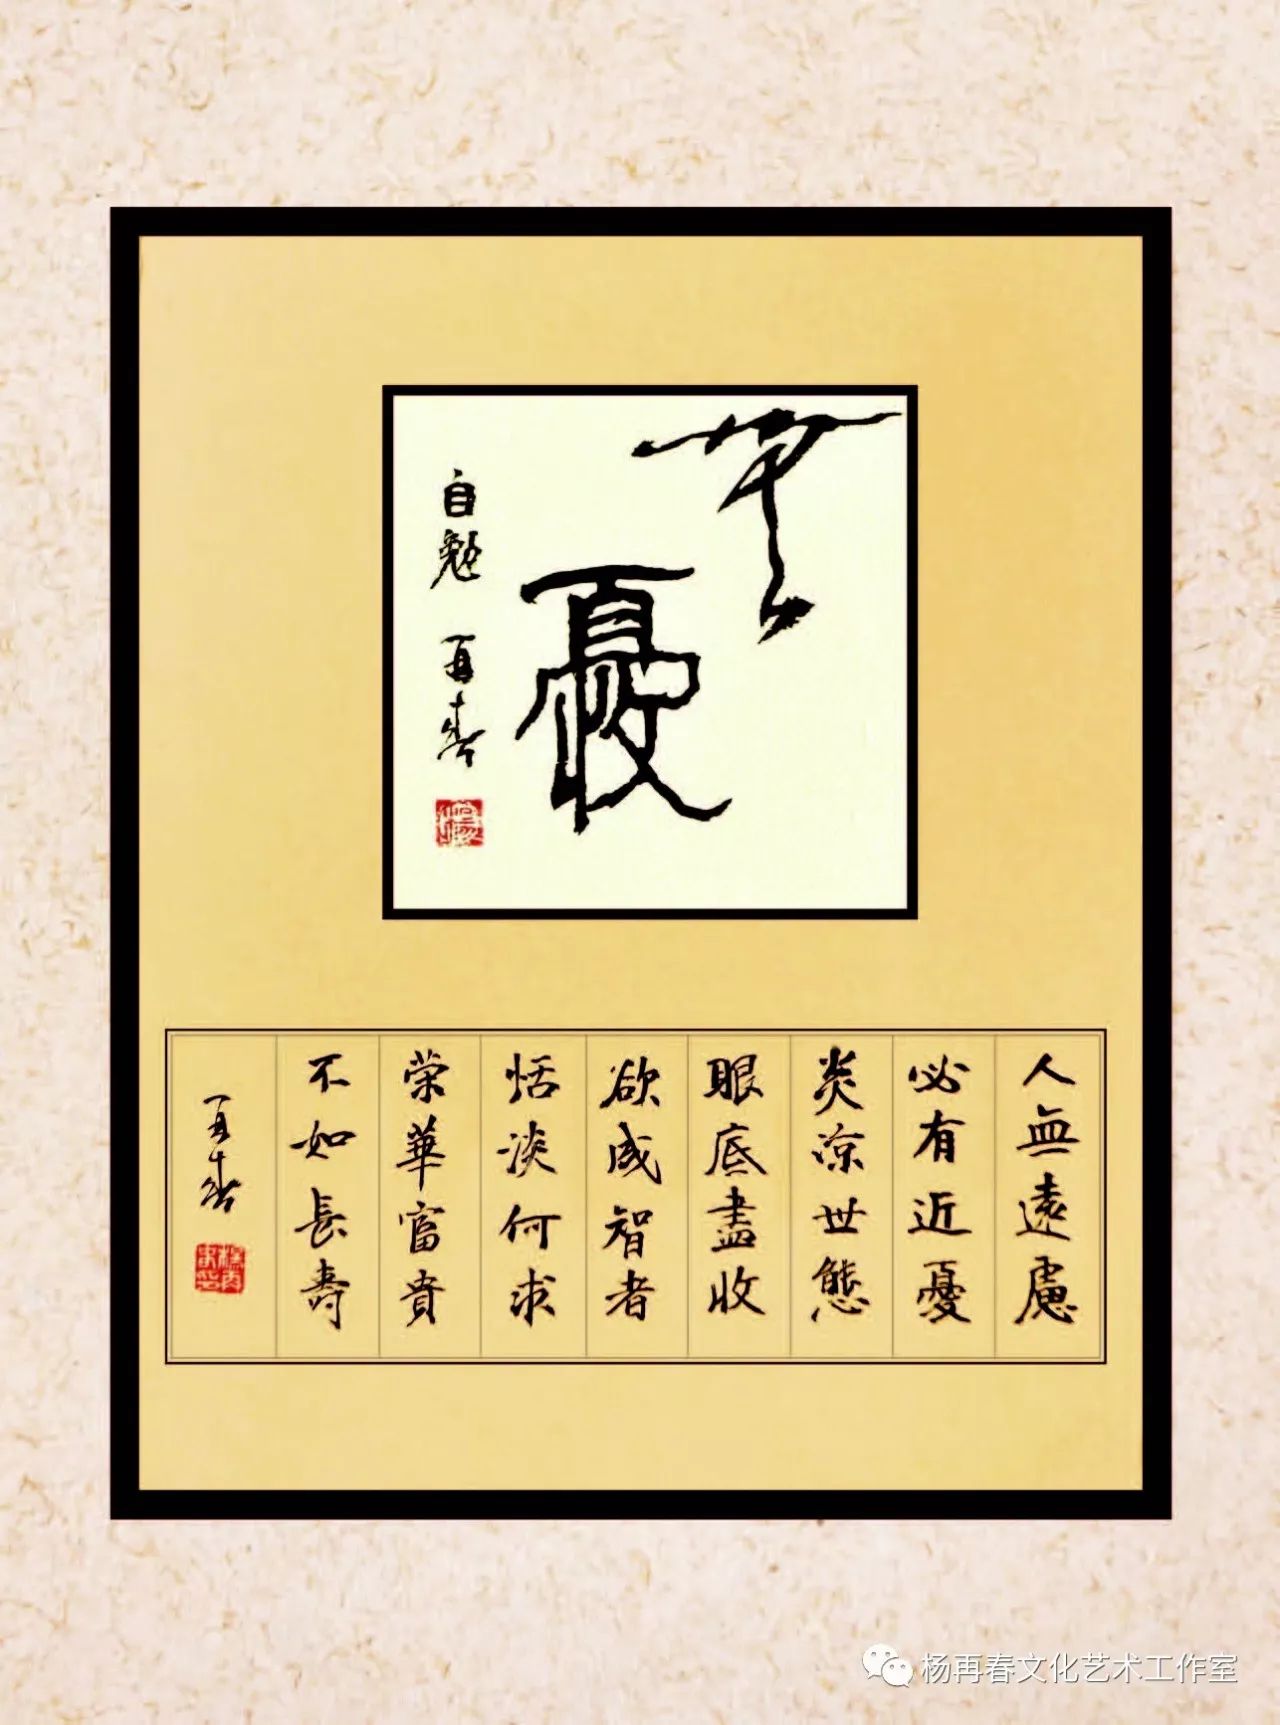 無憂
自勉 再春
人無遠慮
必有近憂
炎涼世態
眼底盡收
欲成智者
恬淡何求
荣華富貴
不如長壽
再春
杨再春文化艺术工作室